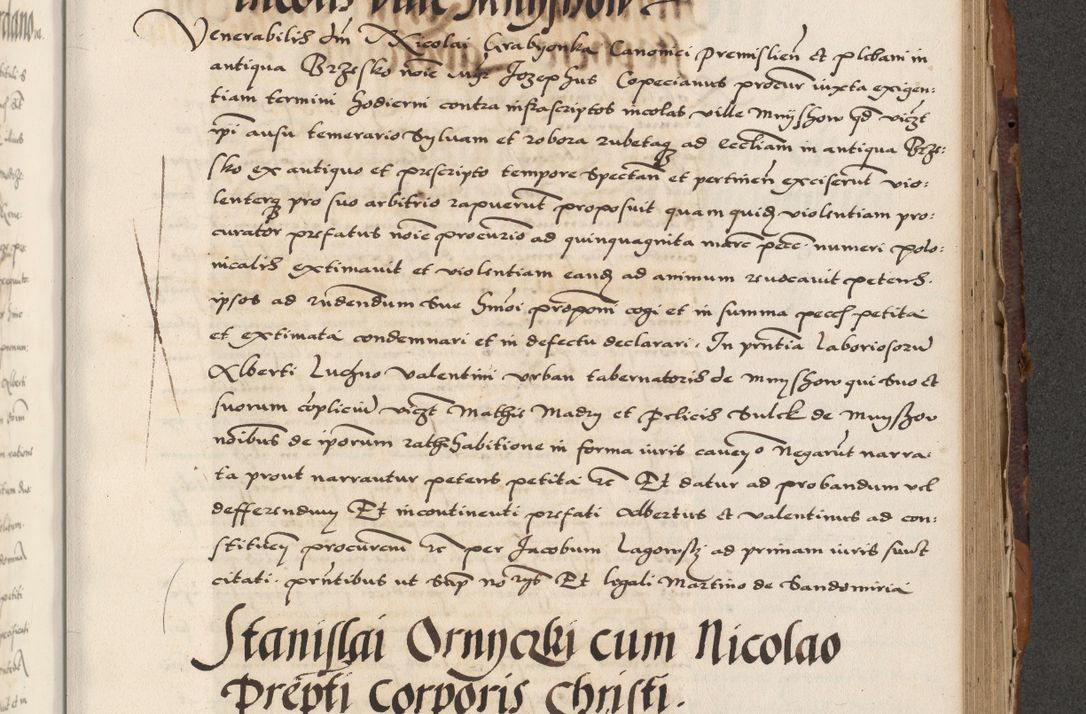 incolis ville Mnyshow
Venerabilis dni Nicolai Grabyonka Canonici Premislien et plebani in
antiqua Brzesko noie mgr Jozephus Copecianus procur iuxta exigen-
tiam termini hodierni contra infrascriptos incolas ville Mnyshow qd vicz
ipi ausu temerario Sylvam et robora rubetaq ad eccliam in antiqua Brze-
sko ex antiquo et prescripto tempore Spectan et pertinen exciserut vio-
lenterq pro suo arbitrio rapuerut proposuit quam quid violentiam pro-
curator prefatus noie procurio ad quinquaginta marc pec numeri polo-
nicalis extimavit et violentiam eand ad animum revocavit petens
ipsos ad rndendum sue hmoi proponi cogi et in summa pecc petita
et extimata condemnari et in defectu declarari. In prntia laboriosoru
Alberti Luchno Valentini Urban tabernatoris de Mnyshow qui suo et
suorum cōpliciu vicz Mathis Madry et Felicis Sulck de Mnyszow
noibus de iporum rathihabitione in forma iuris caven Negarut narra-
ta prout narrantur petens petita rc Et datur ad probandum vel
defferendum Et incontinenti prefati Albertus et Valentinus ad con-
stituen procurem rc per Jacobum Lagowsky ad primam iuris sunt
citati. prntibus ut sup no rys Et legali Martino de Sandomiria
Stanislai Ornyczki cum Nicolao
Prepti Corporis Christi.